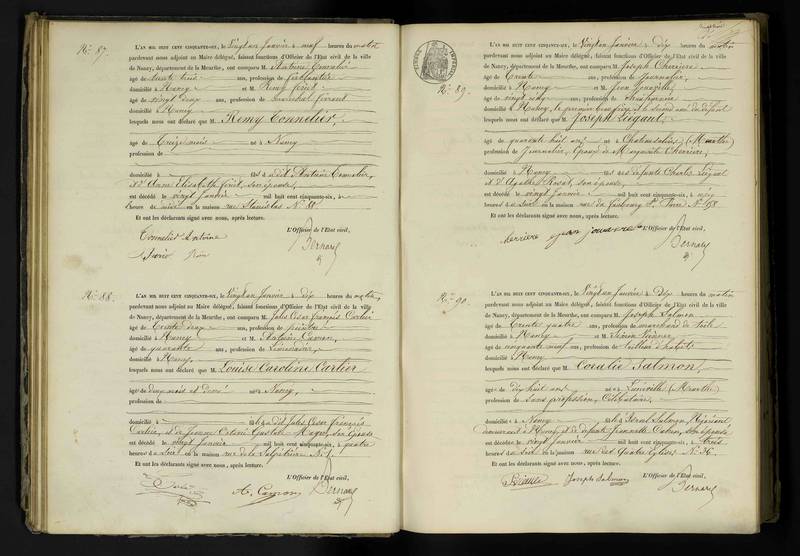 No. 87.
L'AN MIL HUIT CENT CINQUANTE-SIX, le Vingt un Janvier à neuf heures du matin
pardevant nous adjoint au Maire délégué, faisant fonctions d'Officier de l'Etat civil de la ville
de Nancy, département de la Meurthe, ont comparu M. Antoine
âgé de trente trois ans, profession de ferblantier
domicilié à Nancy et M. Remy
âgé de vingt deux ans, profession de
domicilié à Nancy
lesquels nous ont déclaré que M. Remy Tonnelier,
âgé de Treize mois né à Nancy
profession de
domicilié à fils dudit Antoine Tonnelier,
et d'Anne Elisabeth son épouse,
est décédé le vingt Janvier mil huit cent cinquante-six, à une
heure de midi en la maison rue Stanislas No. 81
Et ont les déclarants signé avec nous, après lecture.
L'Officier de l'Etat civil,
Tonnelier Antoine
Bernard
No. 88.
L'AN MIL HUIT CENT CINQUANTE-SIX, le Vingt un Janvier à dix heures du matin,
pardevant nous adjoint au Maire délégué, faisant fonctions d'Officier de l'Etat civil de la ville
de Nancy, département de la Meurthe, ont comparu M. Jules César François Cartier
âgé de Trente deux ans, profession de peintre
domicilié à Nancy et M. Antoine
âgé de quarante ans, profession de
domicilié à Nancy,
lesquels nous ont déclaré que M. Louise Caroline Cartier
âgée de deux mois et demi née à Nancy,
profession de
domicilié à fille dudit Jules César François
Cartier, et de Jeanne son épouse
est décédée le vingt Janvier mil huit cent cinquante-six, à quatre
heures du soir en la maison rue de la Salpêtrière No. 1.
Et ont les déclarants signé avec nous, après lecture.
L'Officier de l'Etat civil,
Bernard
No. 89.
L'AN MIL HUIT CENT CINQUANTE-SIX, le Vingt un Janvier à dix heures du matin
pardevant nous adjoint au Maire délégué, faisant fonctions d'Officier de l'Etat civil de la ville
de Nancy, département de la Meurthe, ont comparu M. Joseph Cherrière
âgé de Trente ans, profession de Journalier,
domicilié à Nancy et M. Jean
âgé de vingt ans, profession de
domicilié à Nancy, le premier beau frère et le second ami du défunt
lesquels nous ont déclaré que M. Joseph Liégaut,
âgé de quarante huit ans né à Chateausalins (Meurthe)
profession de Journalier, époux de Marguerite Cherrière,
domicilié à Nancy fils des défunts Charles Liégaut
et d'Agathe son épouse
est décédé le vingt Janvier mil huit cent cinquante-six, à
heures du soir en la maison rue du faubourg St. Pierre No. 158
Et ont les déclarants signé avec nous, après lecture.
L'Officier de l'Etat civil,
Bernard
No. 90.
L'AN MIL HUIT CENT CINQUANTE-SIX, le Vingt un Janvier à Dix heures du matin
pardevant nous adjoint au Maire délégué, faisant fonctions d'Officier de l'Etat civil de la ville
de Nancy, département de la Meurthe, ont comparu M. Joseph Salmon
âgé de Trente quatre ans, profession de marchand de
domicilié à Nancy et M.
âgé de cinquante neuf ans, profession de tailleur d'habits
domicilié à Nancy
lesquels nous ont déclaré que M. Coralie Salmon,
âgée de dix huit ans née à Lunéville (Meurthe)
profession de sans profession, Célibataire,
domiciliée à Nancy fille d'Israel Salmon
demeurant à Nancy, et de défunte Jeannette Cahen, son épouse
est décédée le vingt Janvier mil huit cent cinquante-six, à trois
heures du soir en la maison rue des Quatre Eglises No. 36.
Et ont les déclarants signé avec nous, après lecture.
L'Officier de l'Etat civil,
Joseph Salmon
Bernard